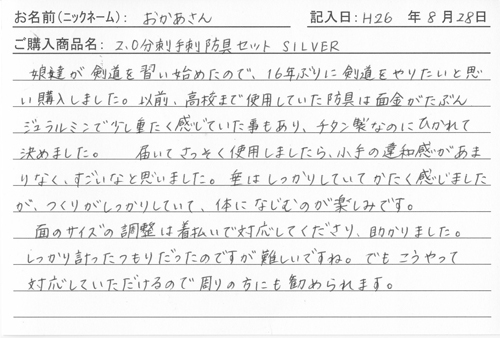 お名前(ニックネーム): おかあさん 記入日:H26 年 8 月 28日
ご購入商品名: 2.0分刺手刺防具セット SILVER
娘達が剣道を習い始めたので、16年ぶりに剣道をやりたいと思
い購入しました。以前、高校まで使用していた防具は面金がたぶん
ジュラルミンで少し重たく感じていた事もあり、チタン製なのにひかれて
決めました。 届いてさっそく使用しましたら、小手の違和感があま
りなく、すごいなと思いました。垂はしっかりしていてかたく感じました
が、つくりがしっかりしていて、体になじむのが楽しみです。
面のサイズの調整は着払いで対応してくださり、助かりました。
しっかり計ったつもりだったのですが難しいですね。でもこうやって
対応していただけるので周りの方にも勧められます。